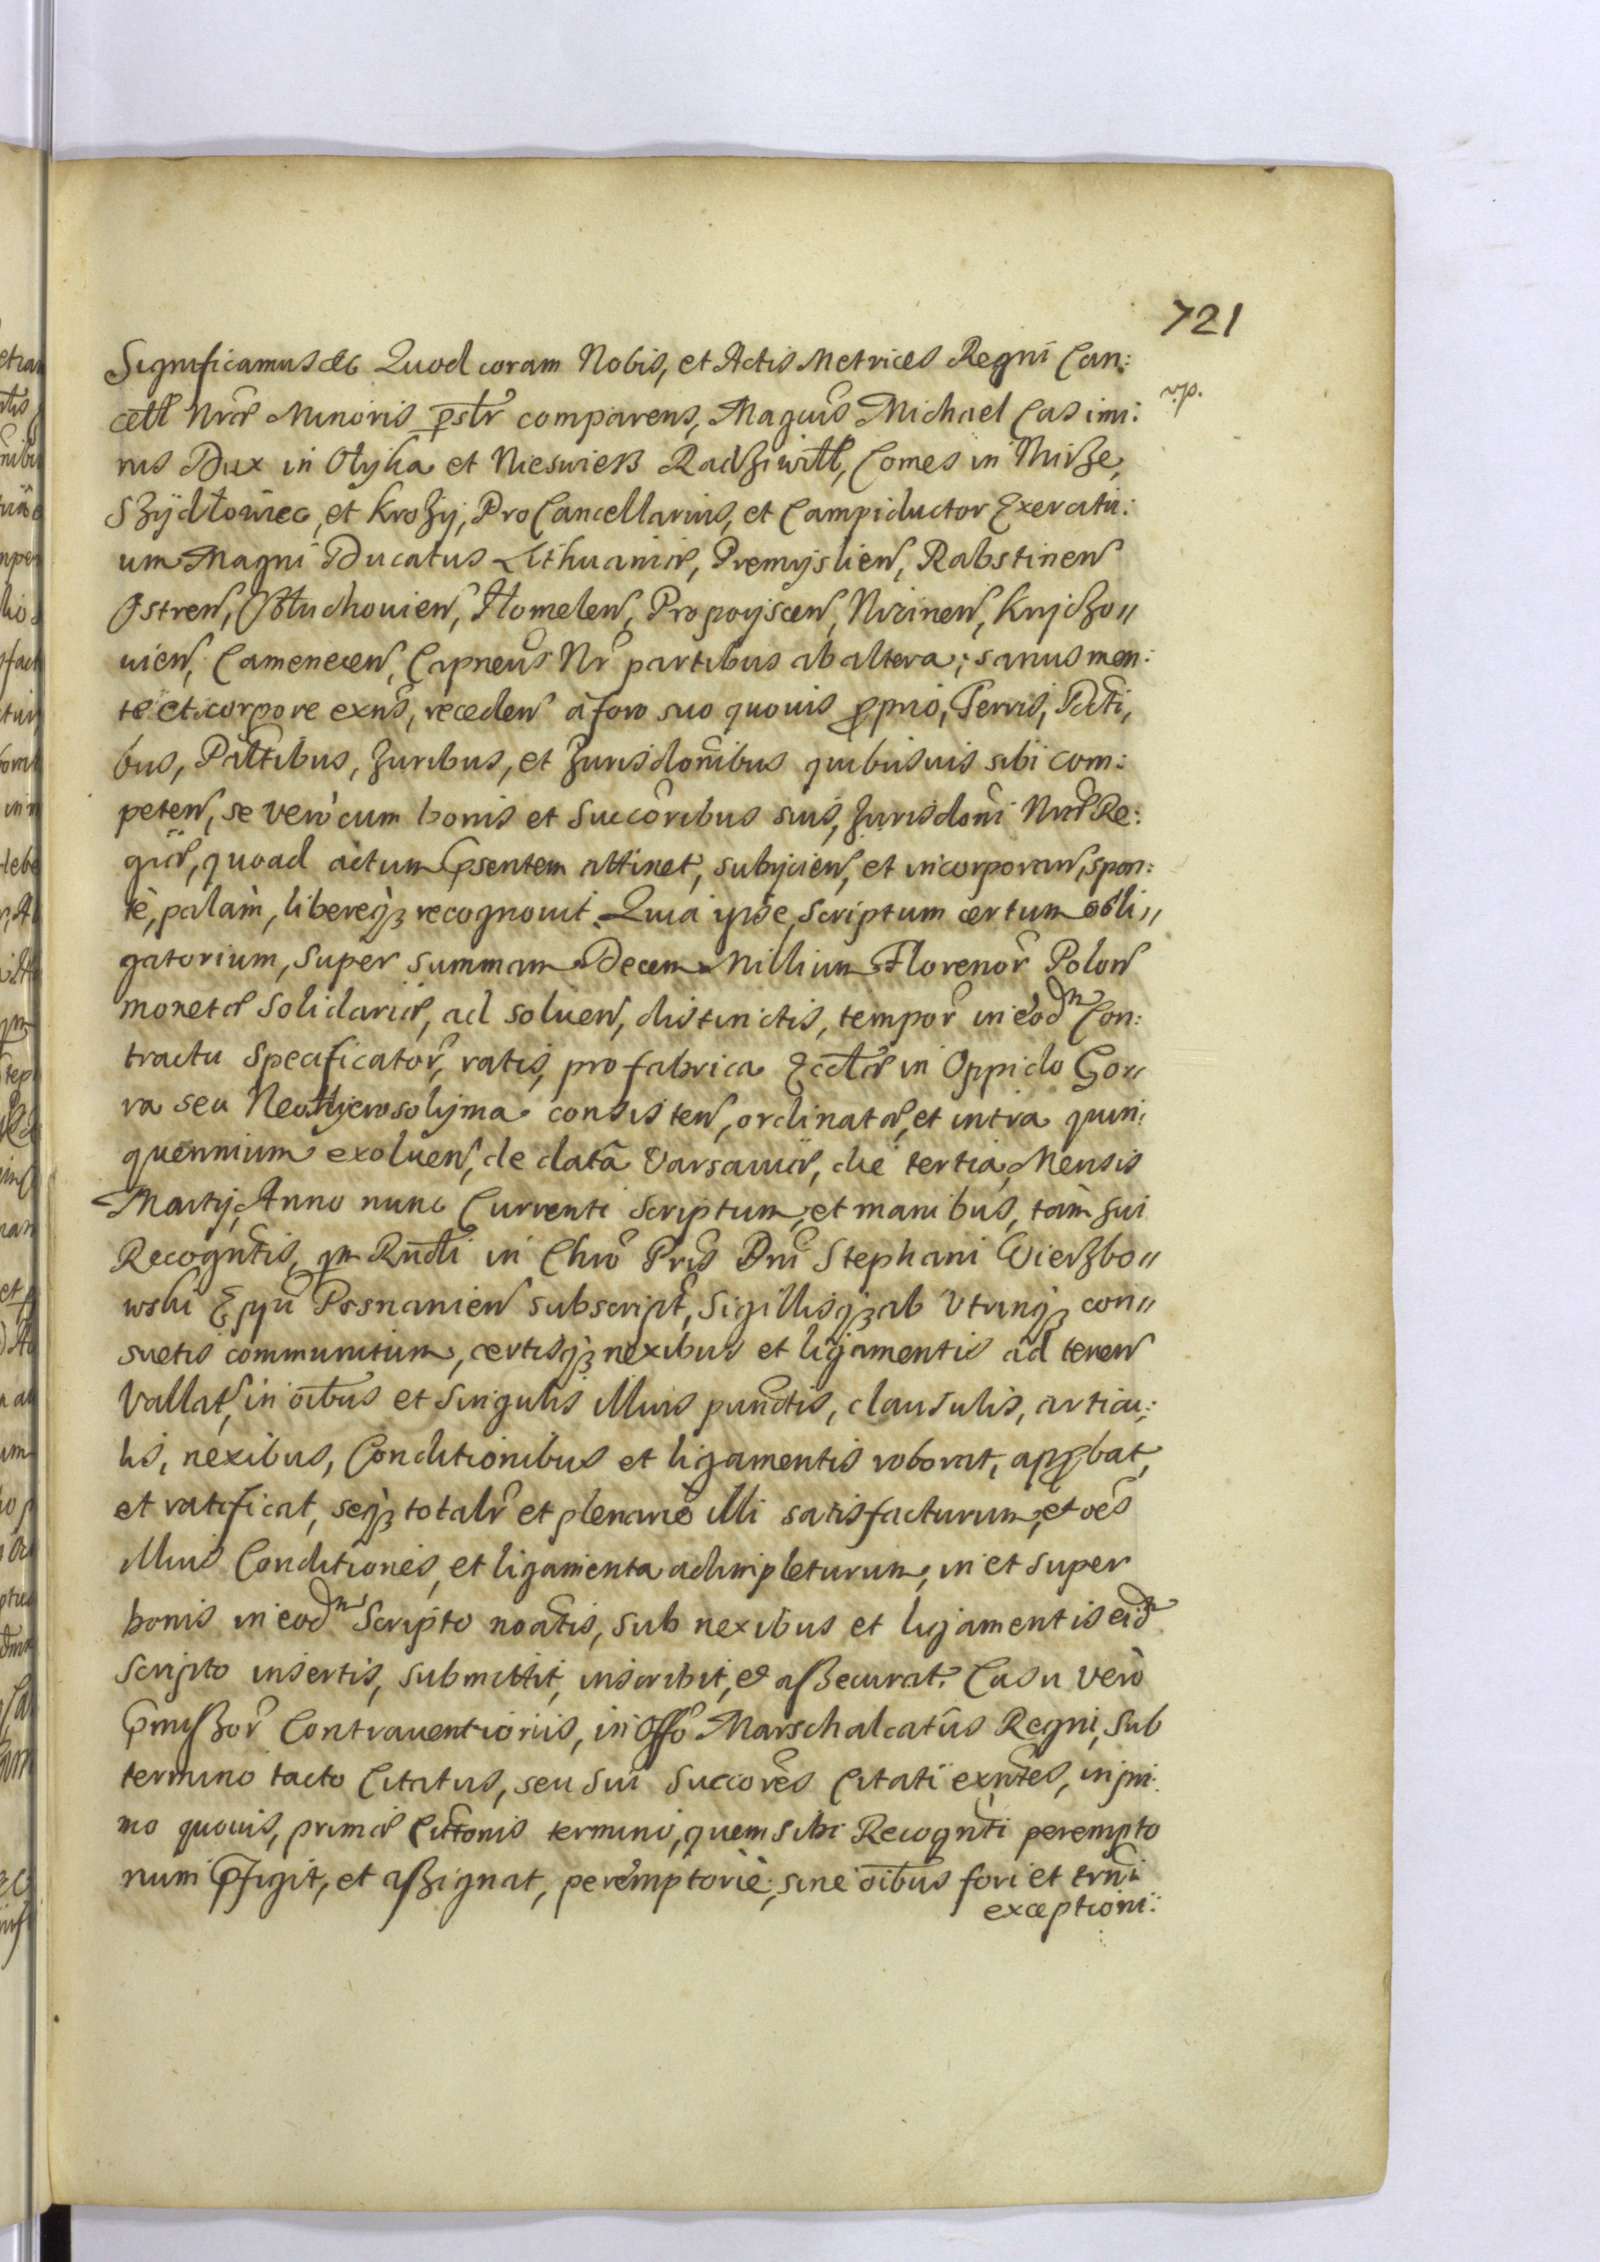 721
Significamus &c Quod coram Nobis, et Actis Metrices Regni Can:
v.p.
cell Nræ Minoris pstr comparens, Magcus Michael Casimi:
rus Dux in Otyka et Nieswieß Radziwiłł, Comes in Mirze,
Szÿdłowiec, et Krozÿ, ProCancellarius, et Campiductor Exercitu:
um Magni Ducatus Lithuaniæ, Premyslien, Rabstinen
Ostren, Człuchouien, Homelen, Propoyscen, Nizinen, Kryczo„
uien, Camenecen, Capneus Nr partibus ab altera; sanus men:
te et corpore exns, receden à foro suo quouis pprio, Terris, Dcti,
bus, Palatibus, Juribus, et Jurisdonibus quibusuis sibi com:
peten, se verò cum bonis et Succoribus suis, Jurisdoni Nræ Re:
giæ, quoad actum psentem attinet, subijcien, et incorporan, spon:
tè, palàm, libereq3 recognouit. Quia ipse, Scriptum certum obli„
gatorium, Super Summam Decem Millium Florenor Polon
monetæ Solidariæ, ad soluen, distinctis, tempor in eodm Con:
tractu Specificator, ratis, pro fabrica Ecclæ in Oppido Gor„
ra seu NeoHyerosolyma consisten, ordinatæ, et intra quin:
quennium exoluen, de data Varsauiæ, die tertia, Mensis
Martij, Anno nunc Currenti Scriptum, et manibus, tàm sui
Recogntis, qm Rndi in Chro Pris Dni Stephani Wierzbo„
wski Eppi Posnanien subscript, Sigillisq3 ab Utrinq3 con„
suetis communitum, certisq3 nexibus et ligamentis ad teren
Vallat, in oibus et Singulis illius punctis, clausulis, articu:
lis, nexibus, Conditionibus et ligamentis roborat, appbat,
et ratificat, seq3 totalr et plenariè illi satisfacturum, et oes
illius Conditiones, et ligamenta adimpleturum, in et super
bonis in eodm Scripto noatis, sub nexibus et ligamentis eidm
scripto insertis, submittit, inscribit, et aßecurat. Casu verò
pmißor Contrauentionis, in Offo Marschalcatûs Regni, sub
termino tacto Citatus, seu sui Succores Citati exntes, in pri:
mo quouis, primæ Cittonis termino, quem sibi Recognti perempto
rium pfigit, et aßignat, peremptoriè; sine oibus fori et trni
exceptioni: